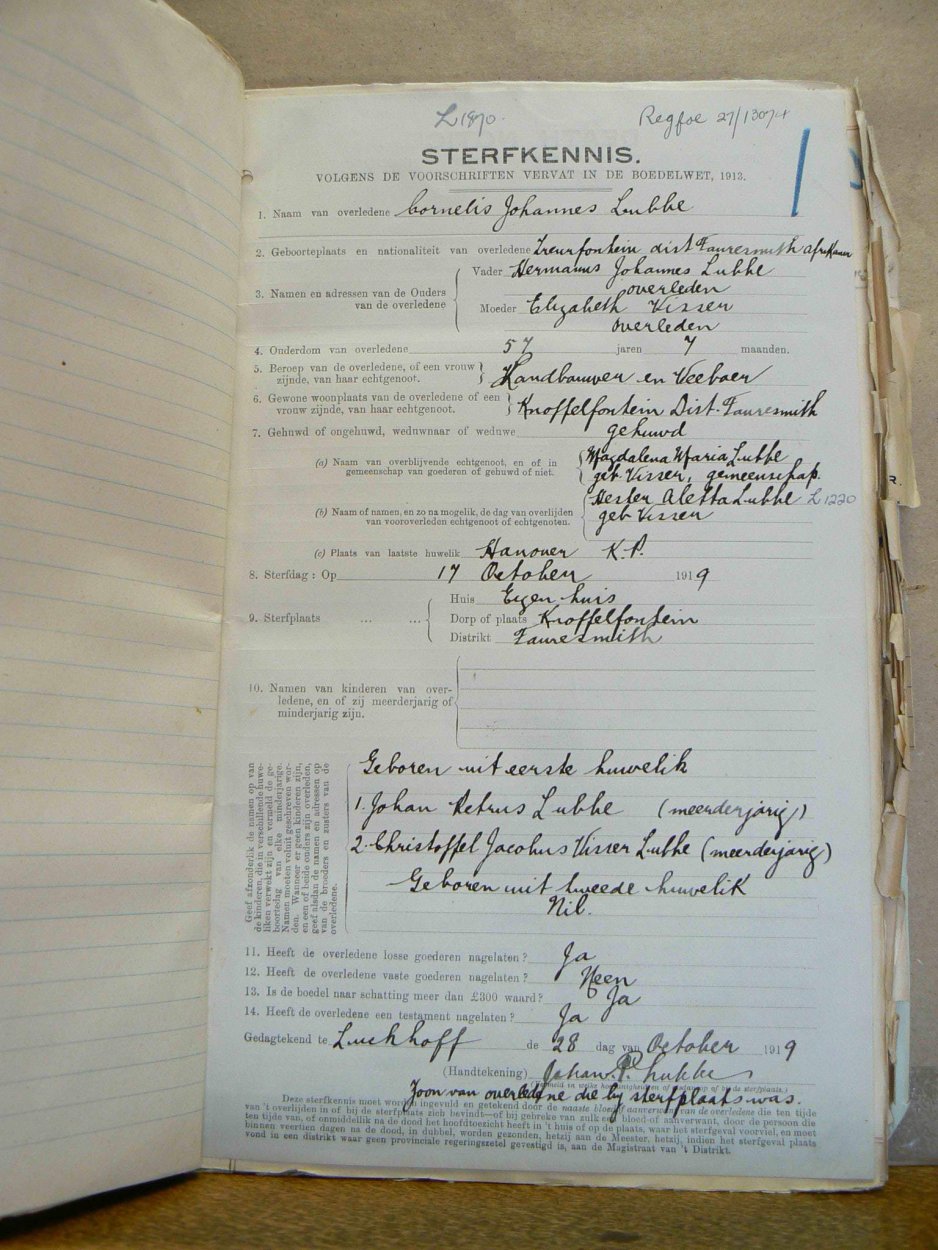 L1870.
Regfoe 27/13074
STERFKENNIS.
VOLGENS DE VOORSCHRIFTEN VERVAT IN DE BOEDELWET, 1913.
1. Naam van overledene Cornelis Johannes Lubbe
2. Geboorteplaats en nationaliteit van overledene Treurfontein dist Fauresmith Afrikaner
3. Namen en adressen van de Ouders van de overledene
Vader Hermanus Johannes Lubbe
overleden
Moeder Elizabeth Visser
overleden
4. Onderdom van overledene 57 jaren 7 maanden.
5. Beroep van de overledene, of een vrouw zijnde, van haar echtgenoot. Landbouwer en Veeboer
6. Gewone woonplaats van de overledene of een vrouw zijnde, van haar echtgenoot. Knoffelfontein Dist. Fauresmith
7. Gehuwd of ongehuwd, weduwnaar of weduwe gehuwd
(a) Naam van overblijvende echtgenoot, en of in gemeenschap van goederen of gehuwd of niet.
Magdalena Maria Lubbe
geb. Visser, gemeenschap.
(b) Naam of namen, en zo na mogelik, de dag van overlijden van vooroverleden echtgenoot of echtgenoten.
Hester Aletta Lubbe L1220
geb Visser
(c) Plaats van laatste huwelik Hanover K.P.
8. Sterfdag : Op 17 October 1919
9. Sterfplaats ... ...
Huis Eigen huis
Dorp of plaats Knoffelfontein
Distrikt Fauresmith
10. Namen van kinderen van overledene, en of zij meerderjarig of minderjarig zijn.
Geef afzonderlik de namen op van
de kinderen, die in verschillende huwe-
liken verwekt zijn en vermeld de ge-
boortedag van elke minderjarige.
Namen moeten voluit geschreven wor-
den. Wanneer er geen kinderen zijn,
en een of beide ouders zijn overleden,
geef alsdan de namen en adressen op
van de broeders en zusters van de
overledene.
Geboren uit eerste huwelik
1. Johan Petrus Lubbe (meerderjarig)
2. Christoffel Jacobus Visser Lubbe (meerderjarig)
Geboren uit tweede huwelik
Nil.
11. Heeft de overledene losse goederen nagelaten? Ja
12. Heeft de overledene vaste goederen nagelaten? Neen
13. Is de boedel naar schatting meer dan £300 waard? Ja
14. Heeft de overledene een testament nagelaten? Ja
Gedagtekend te Luckhoff de 28 dag van October 1919
(Handtekening) Johan. P. Lubbe
Zoon van overledene die by sterfplaats was.
Deze sterfkennis moet worden ingevuld en getekend door de naaste bloed of aanverwant van de overledene die ten tijde
van 't overlijden in of bij de sterfplaats zich bevindt—of bij gebreke van zulk een bloed-of aanverwant, door de persoon die
ten tijde van, of onmiddellik na de dood het hoofdtoezicht heeft in 't huis of op de plaats, waar het sterfgeval voorviel, en moet
binnen veertien dagen na de dood, in dubbel, worden gezonden, hetzij aan de Meester, hetzij, indien het sterfgeval plaats
vond in een distrikt waar geen provinciale regeringszetel gevestigd is, aan de Magistraat van 't Distrikt.